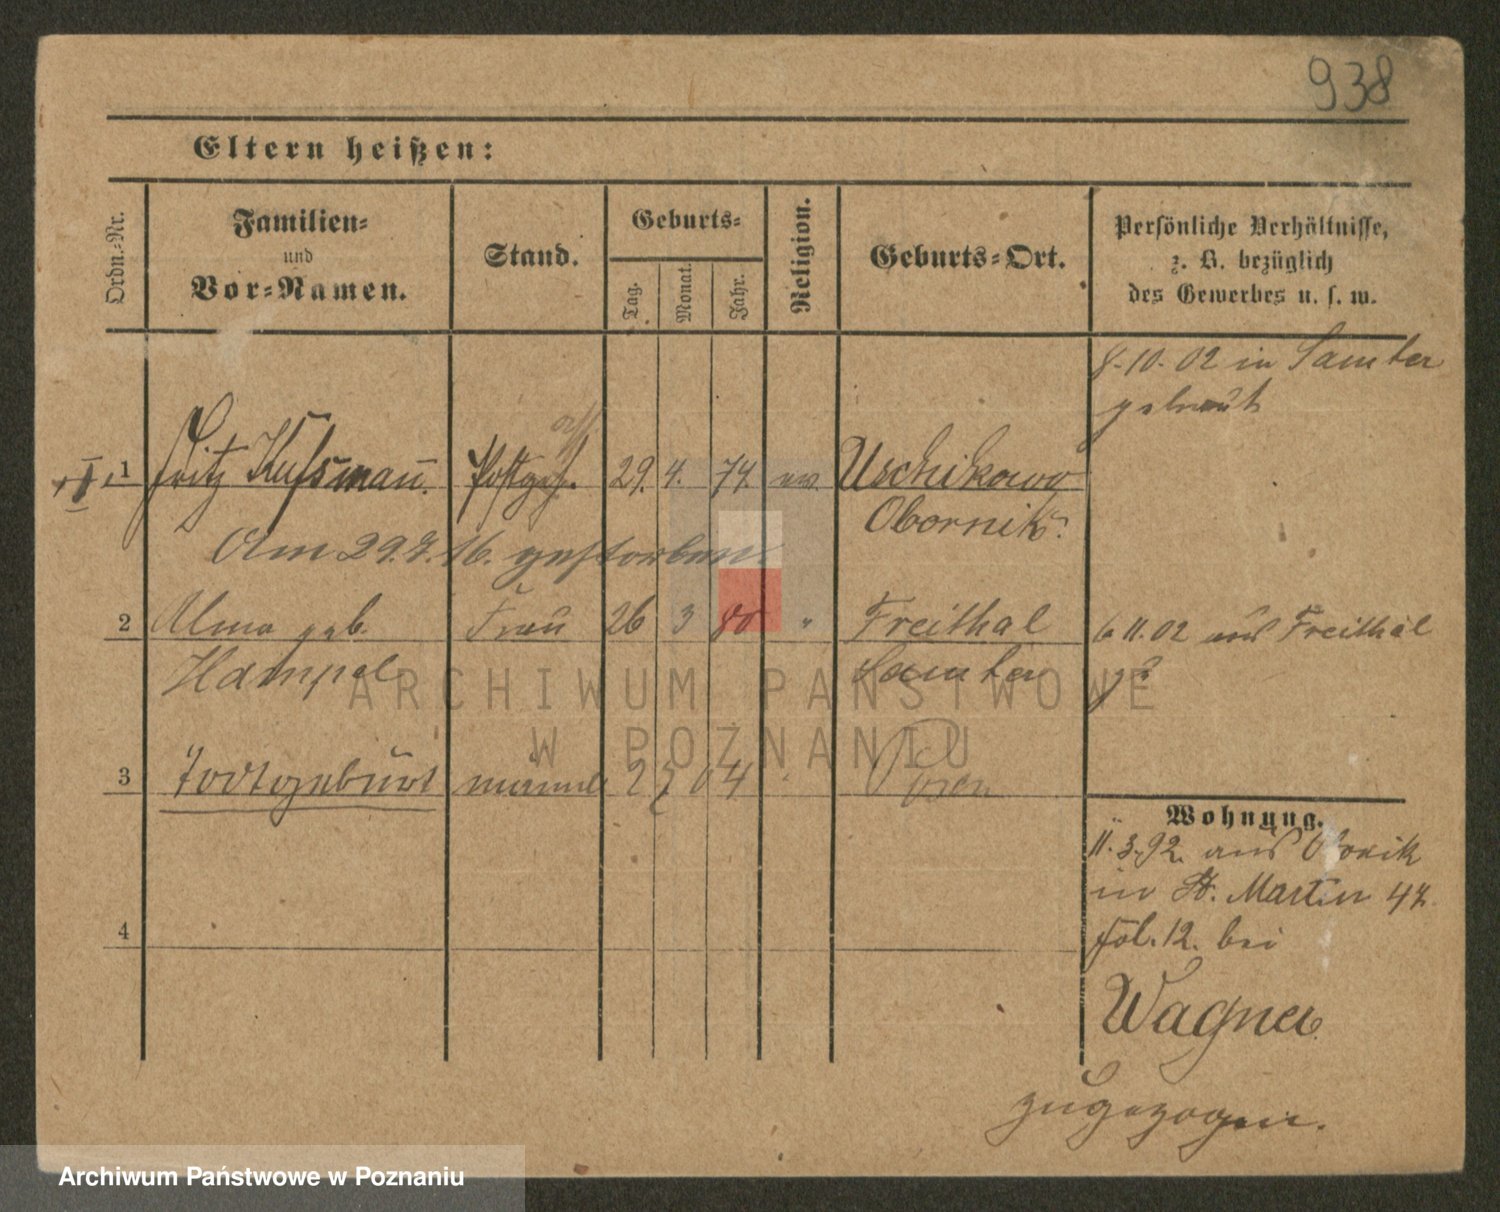 938
Eltern heißen:
Ordn.-Nr.
Familien-
und
Vor-Namen.
Stand.
Geburts-
Tag.
Monat.
Jahr.
Religion.
Geburts-Ort.
Persönliche Verhältnisse,
z. B. bezüglich
des Gewerbes u. s. w.
8.10.02 in Samter
getraut
1 Fritz Postgeh. 29. 4. 74. ev. Uschikowo
Obornik.
Am 29. 16. gestorben.
2 Alma geb. Frau 26 3 80 " Freithal
Hampel Samter
6 11.02 aus Freithal
3 Todtgeburt männl 2 7 04 " Posen
4
Wohnung.
11.3.92. aus Obornik
in St. Martin 47.
Fol. 12. bei
Wagner
zugezogen.
ARCHIWUM PAŃSTWOWE
W POZNANIU
Archiwum Państwowe w Poznaniu